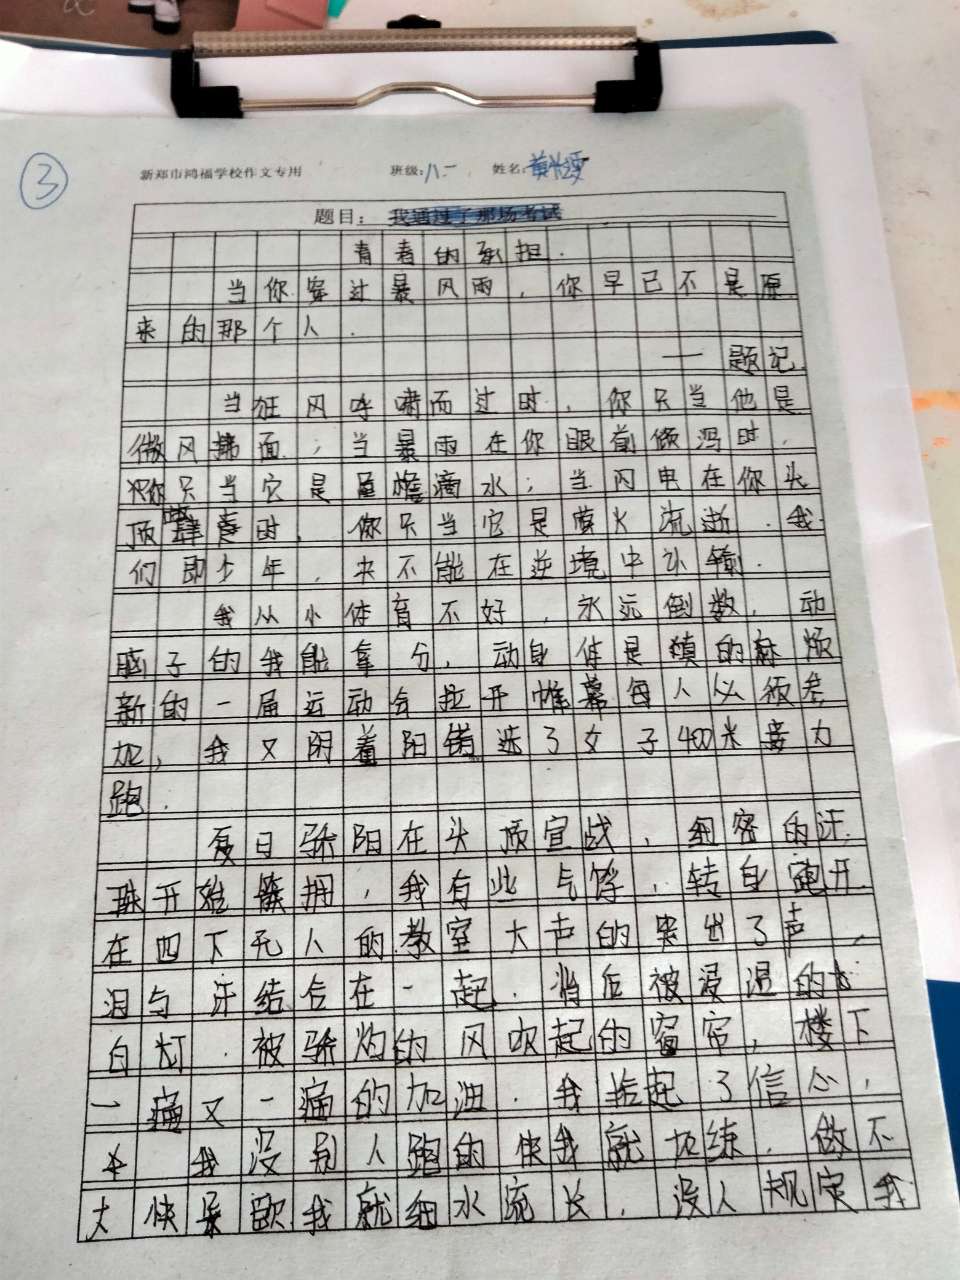 ③
新郑市鸿福学校作文专用 班级:八一 姓名:黄
题目: 我通过了那场考试
青春的承担.
当你穿过暴风雨,你早已不是原
来的那个人.
——题记.
当狂风呼啸而过时,你只当他是
微风拂面;当暴雨在你眼前倾泻时,
你只当它是屋檐滴水;当闪电在你头
顶肆意时,你只当它是萤火流逝.我
们即少年,来不能在逆境中认输.
我从小体育不好,永远倒数,动
脑子的我能拿分,动身体是真的麻烦
新的一届运动会拉开帷幕每人必须参
加,我又阴着阳错选了女子400米接力
跑.
夏日骄阳在头顶宣战,细密的汗
珠开始簇拥,我有些气馁,转身跑开.
在四下无人的教室大声的哭出了声,
泪与汗结合在一起.背后被浸湿的
白灯.被骄灼的风吹起的窗帘,楼下
一痛又一痛的加油.我拾起了信心,
我没别人跑的快我就加练,做不
大快朵颐我就细水流长,没人规定我